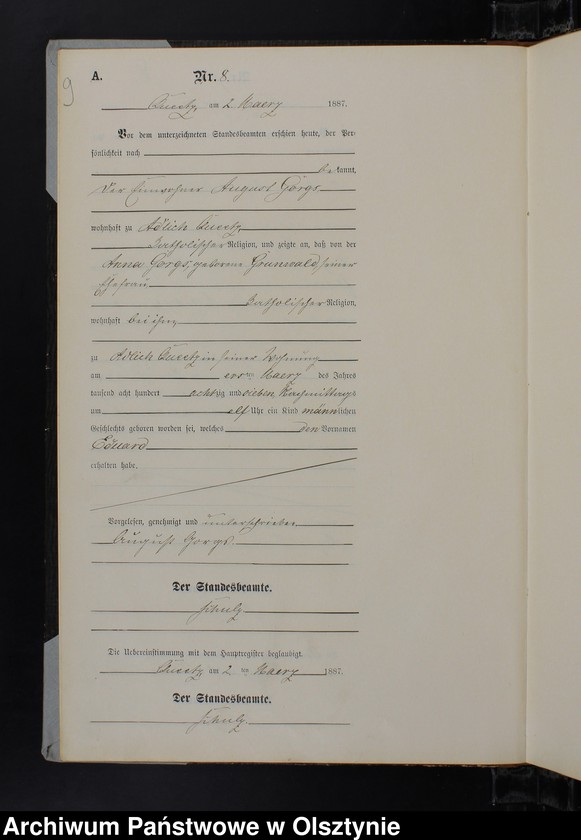 9
A.
Nr. 8.
Queetz am 2. Maerz 1887.
Vor dem unterzeichneten Standesbeamten erschien heute, der Per-
sönlichkeit nach
be kannt,
der Einwohner August Gorgs
wohnhaft zu Adlich Queetz
katholischer Religion, und zeigte an, daß von der
Anna Gorgs, geborene Grunwald, seiner
Ehefrau
katholischer Religion,
wohnhaft bei ihm
zu Adlich Queetz in seiner Wohnung
am ersten Maerz des Jahres
tausend acht hundert achtzig und sieben, Nachmittags
um elf Uhr ein Kind männlichen
Geschlechts geboren worden sei, welches den Vornamen
Eduard
erhalten habe.
Vorgelesen, genehmigt und unterschrieben
August Gorgs.
Der Standesbeamte.
Schulz
Die Uebereinstimmung mit dem Hauptregister beglaubigt.
Queetz am 2 ten Maerz 1887.
Der Standesbeamte.
Schulz
Archiwum Państwowe w Olsztynie